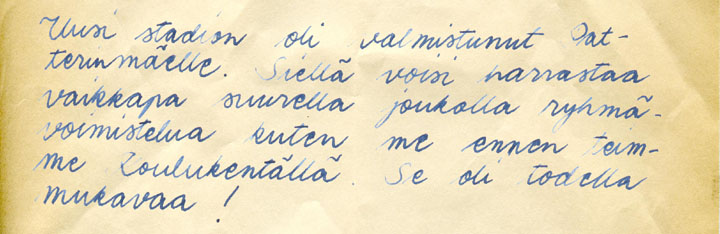 Uusi stadion oli valmistunut Pat-
terinmäelle. Siellä voisi harrastaa
vaikkapa suurella joukolla ryhmä-
voimistelua kuten me ennen teim-
me Koulukentällä. Se oli todella
mukavaa !